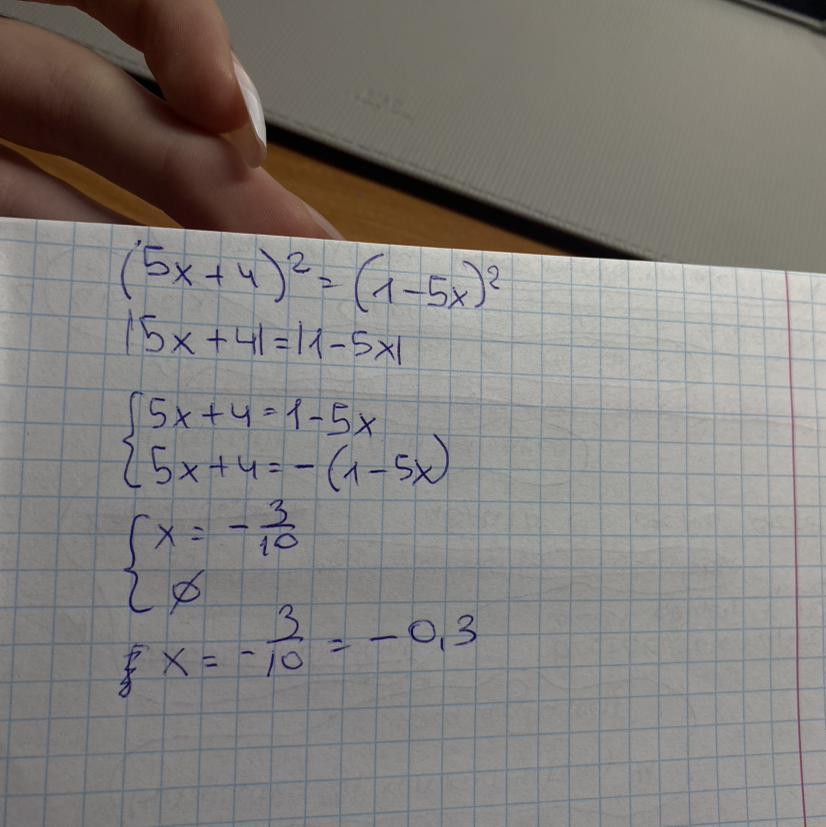 (5x+4)² = (1-5x)²
|5x+4|=|1-5x|
{ 5x+4=1-5x
5x+4=-(1-5x)
{ x = -3/10
∅
x = -3/10 = -0,3